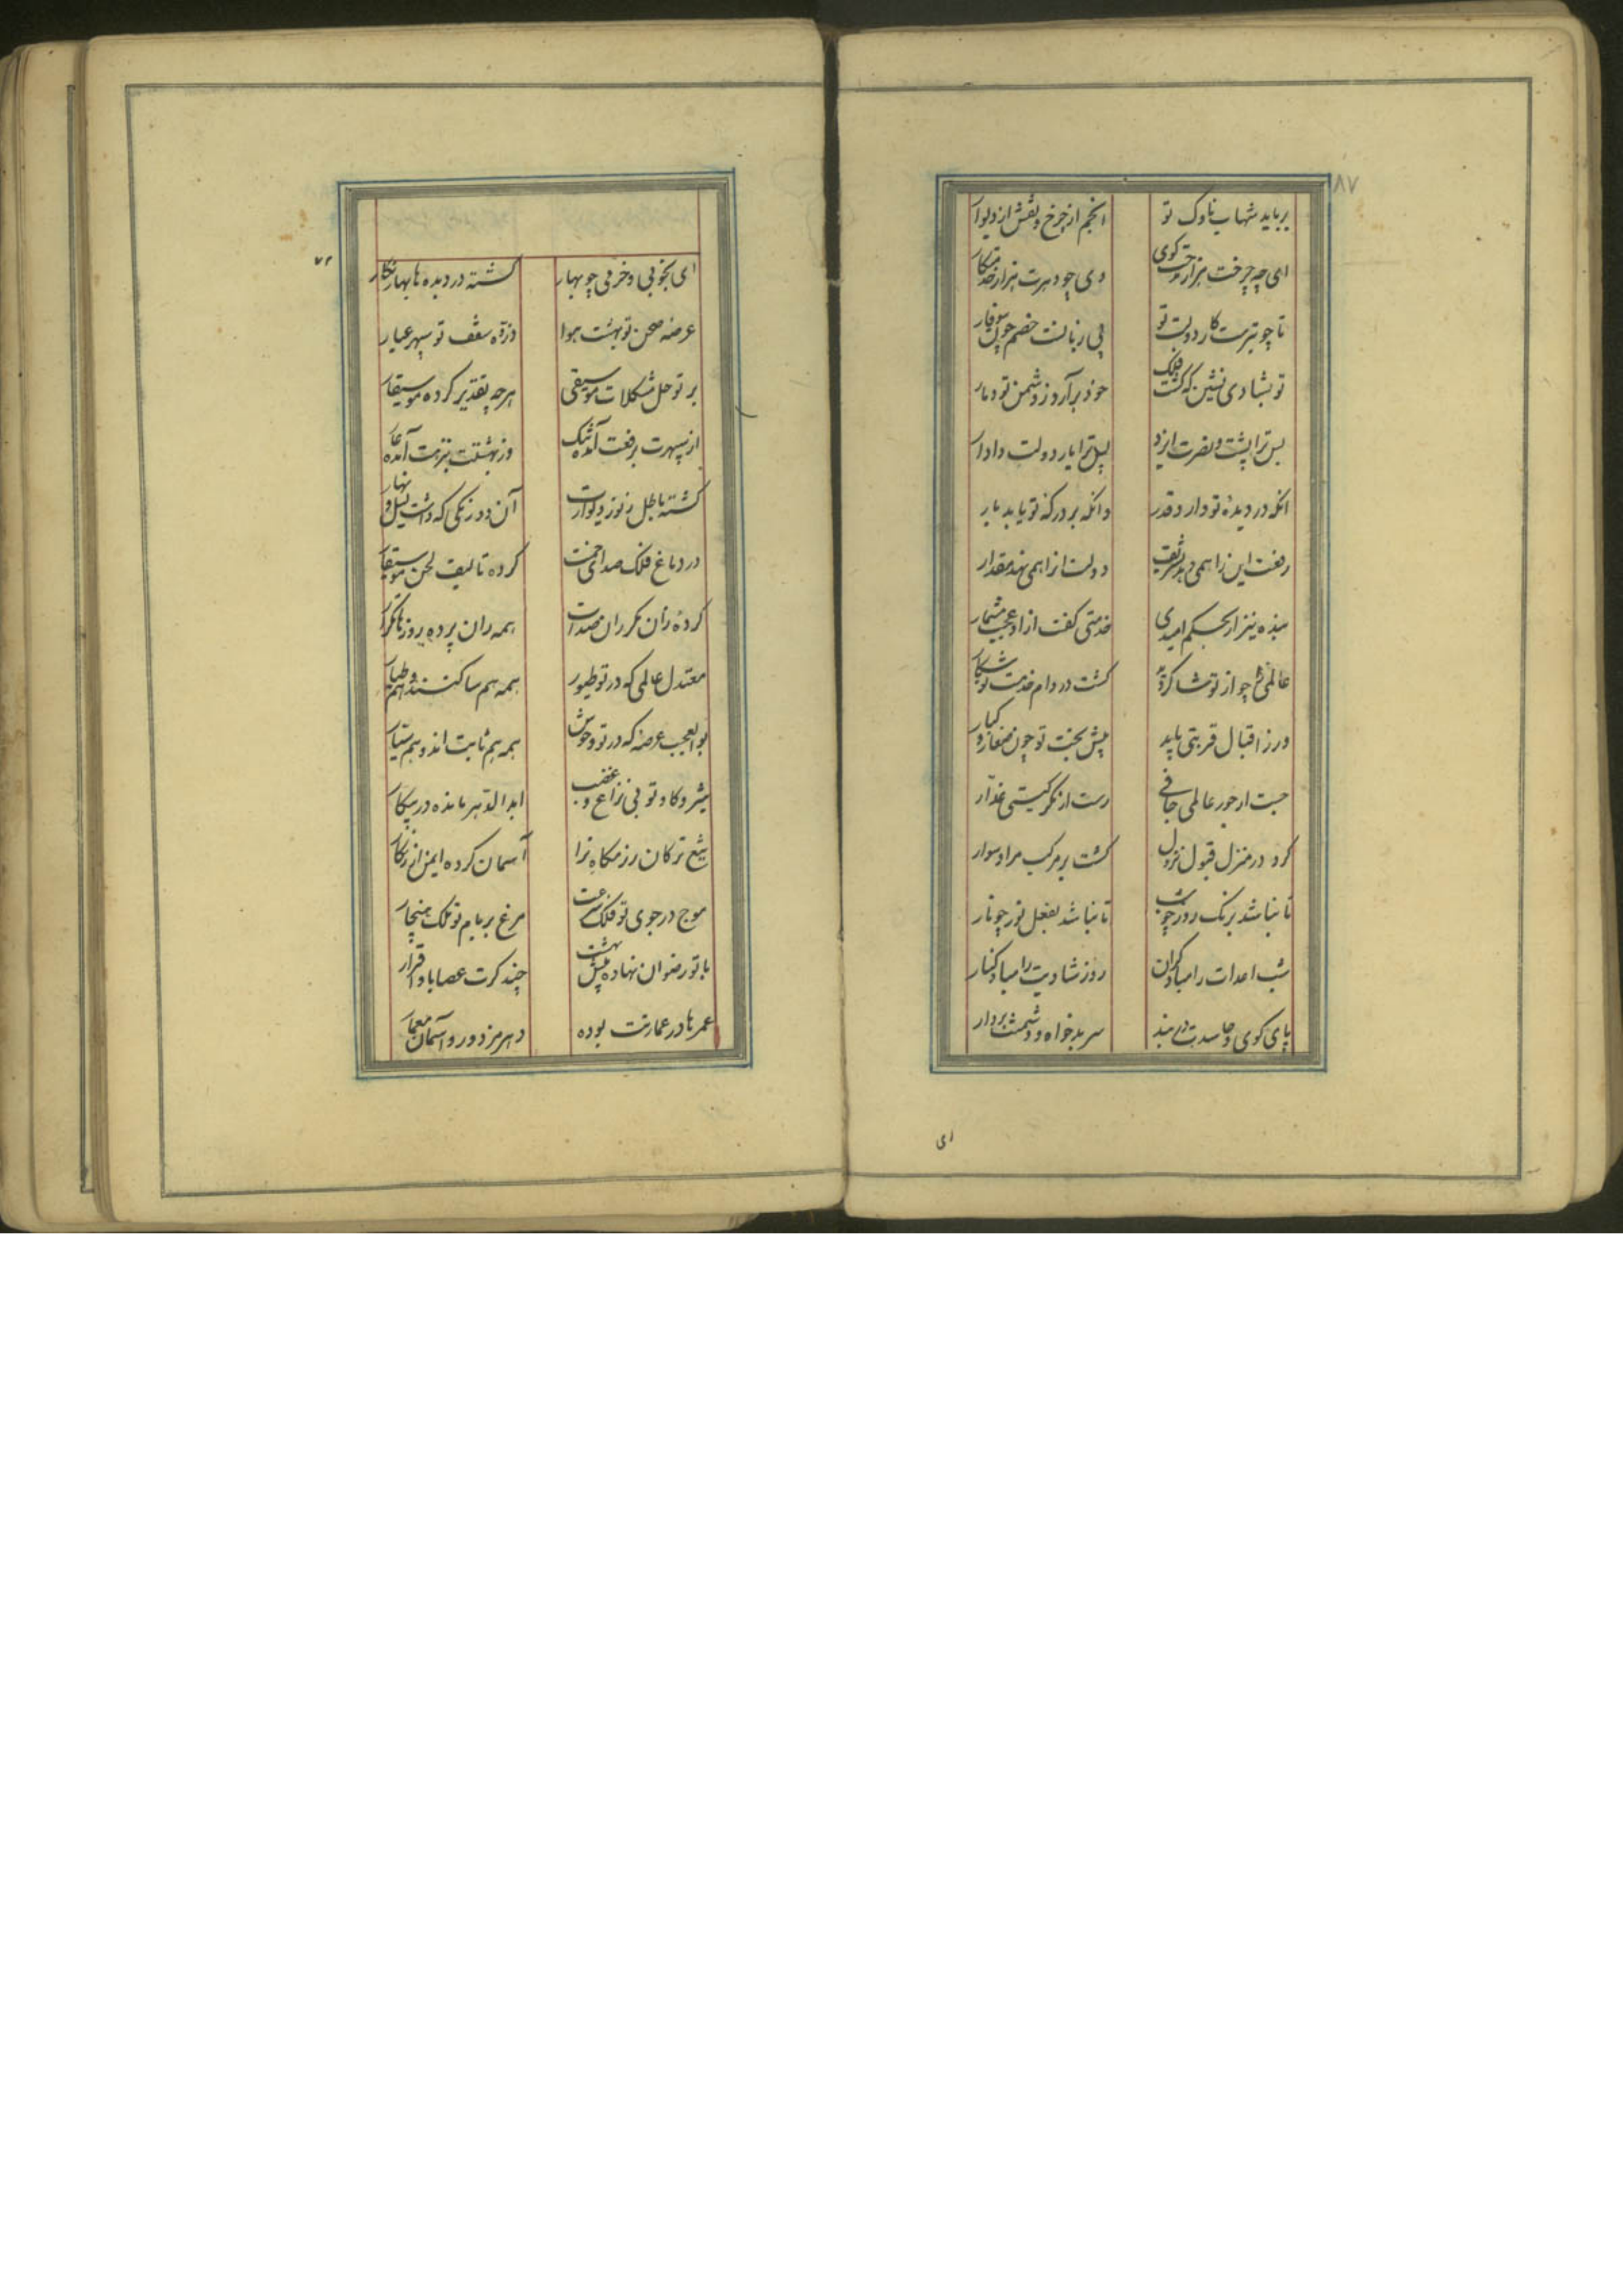 ۸۷
برباید شهاب ناوک تو انجم از چرخ و نقش از دیوار
ای چو چرخت هزار مدحت گوی وی چو دهرت هزار خدمتکار
تا چو تیرست کار دولت تو بی زبانست خصم چون سوفار
تو بشادی نشین که گشت فلک خود برآرد ز دشمن تو دمار
بس ترا پشت و نصرت ایزد بس ترا یار دولت دادار
انکه در دیده تو دارد قدر وانکه بر درکه تو یابد بار
رفعت این را همی دهد تشریف دولت انرا همی نهد مقدار
بنده نیز ار بحکم امیدی خدمتی گفت ازاو عجب مشمار
عالمی را چو از تو شاکر دید گشت در دام خدمت تو شکار
ورز اقبال قربتی یابد پیش بخت تو چون صغار و کبار
جست از جور عالمی جافی رست از مکر گیتی غدار
کرد در منزل قبول نزول گشت بر مرکب مراد سوار
تا نباشد برنک روز چو شب تا نباشد بفعل نور چو نار
شب اعدات را مباد کران روز شادیت را مباد کنار
پای کوی و حاسدت در بند سر بدخواه و دشمنت بر دار
ای
۷۲
ای بخوبی و خرمی چو بهار گشته در دیده ها بهار نکار
عرصه صحن تو بهشت هوا وزة سقف تو سپهر عیار
بر تو حل مشکلات موسیقی هرچه تقدیر کرده موسیقار
از سپهرت برفعت آمده ننک وز بهشتت بنزهت آمده عار
گشته باطل ز نور دیوارت آن دو رنکی که داشت لیل و نهار
در دماغ فلک صدای خمت کرده تالیف لحن موسیقار
کرده زان مکرران صدات همه ران پرده روزها تکرار
معتدل عالمی که در تو طیور همه هم ساکنند و هم طیار
بوالعجب عرصه که در تو وحوش همه هم ثابت اند و هم سیار
شیر و کاو تو بی نزاع و غضب ابدا الدهر مانده در پیکار
تیغ ترکان رزمکاه ترا آسمان کرده ایمن از زنکار
موج در جوی تو فلک سرعت مرغ بر بام تو ملک هنجار
با تو رضوان نهاده پیش بهشت چند کرت عصا باو اقرار
عمرها در عمارتت بوده دهر مزدور و آسمان معمار